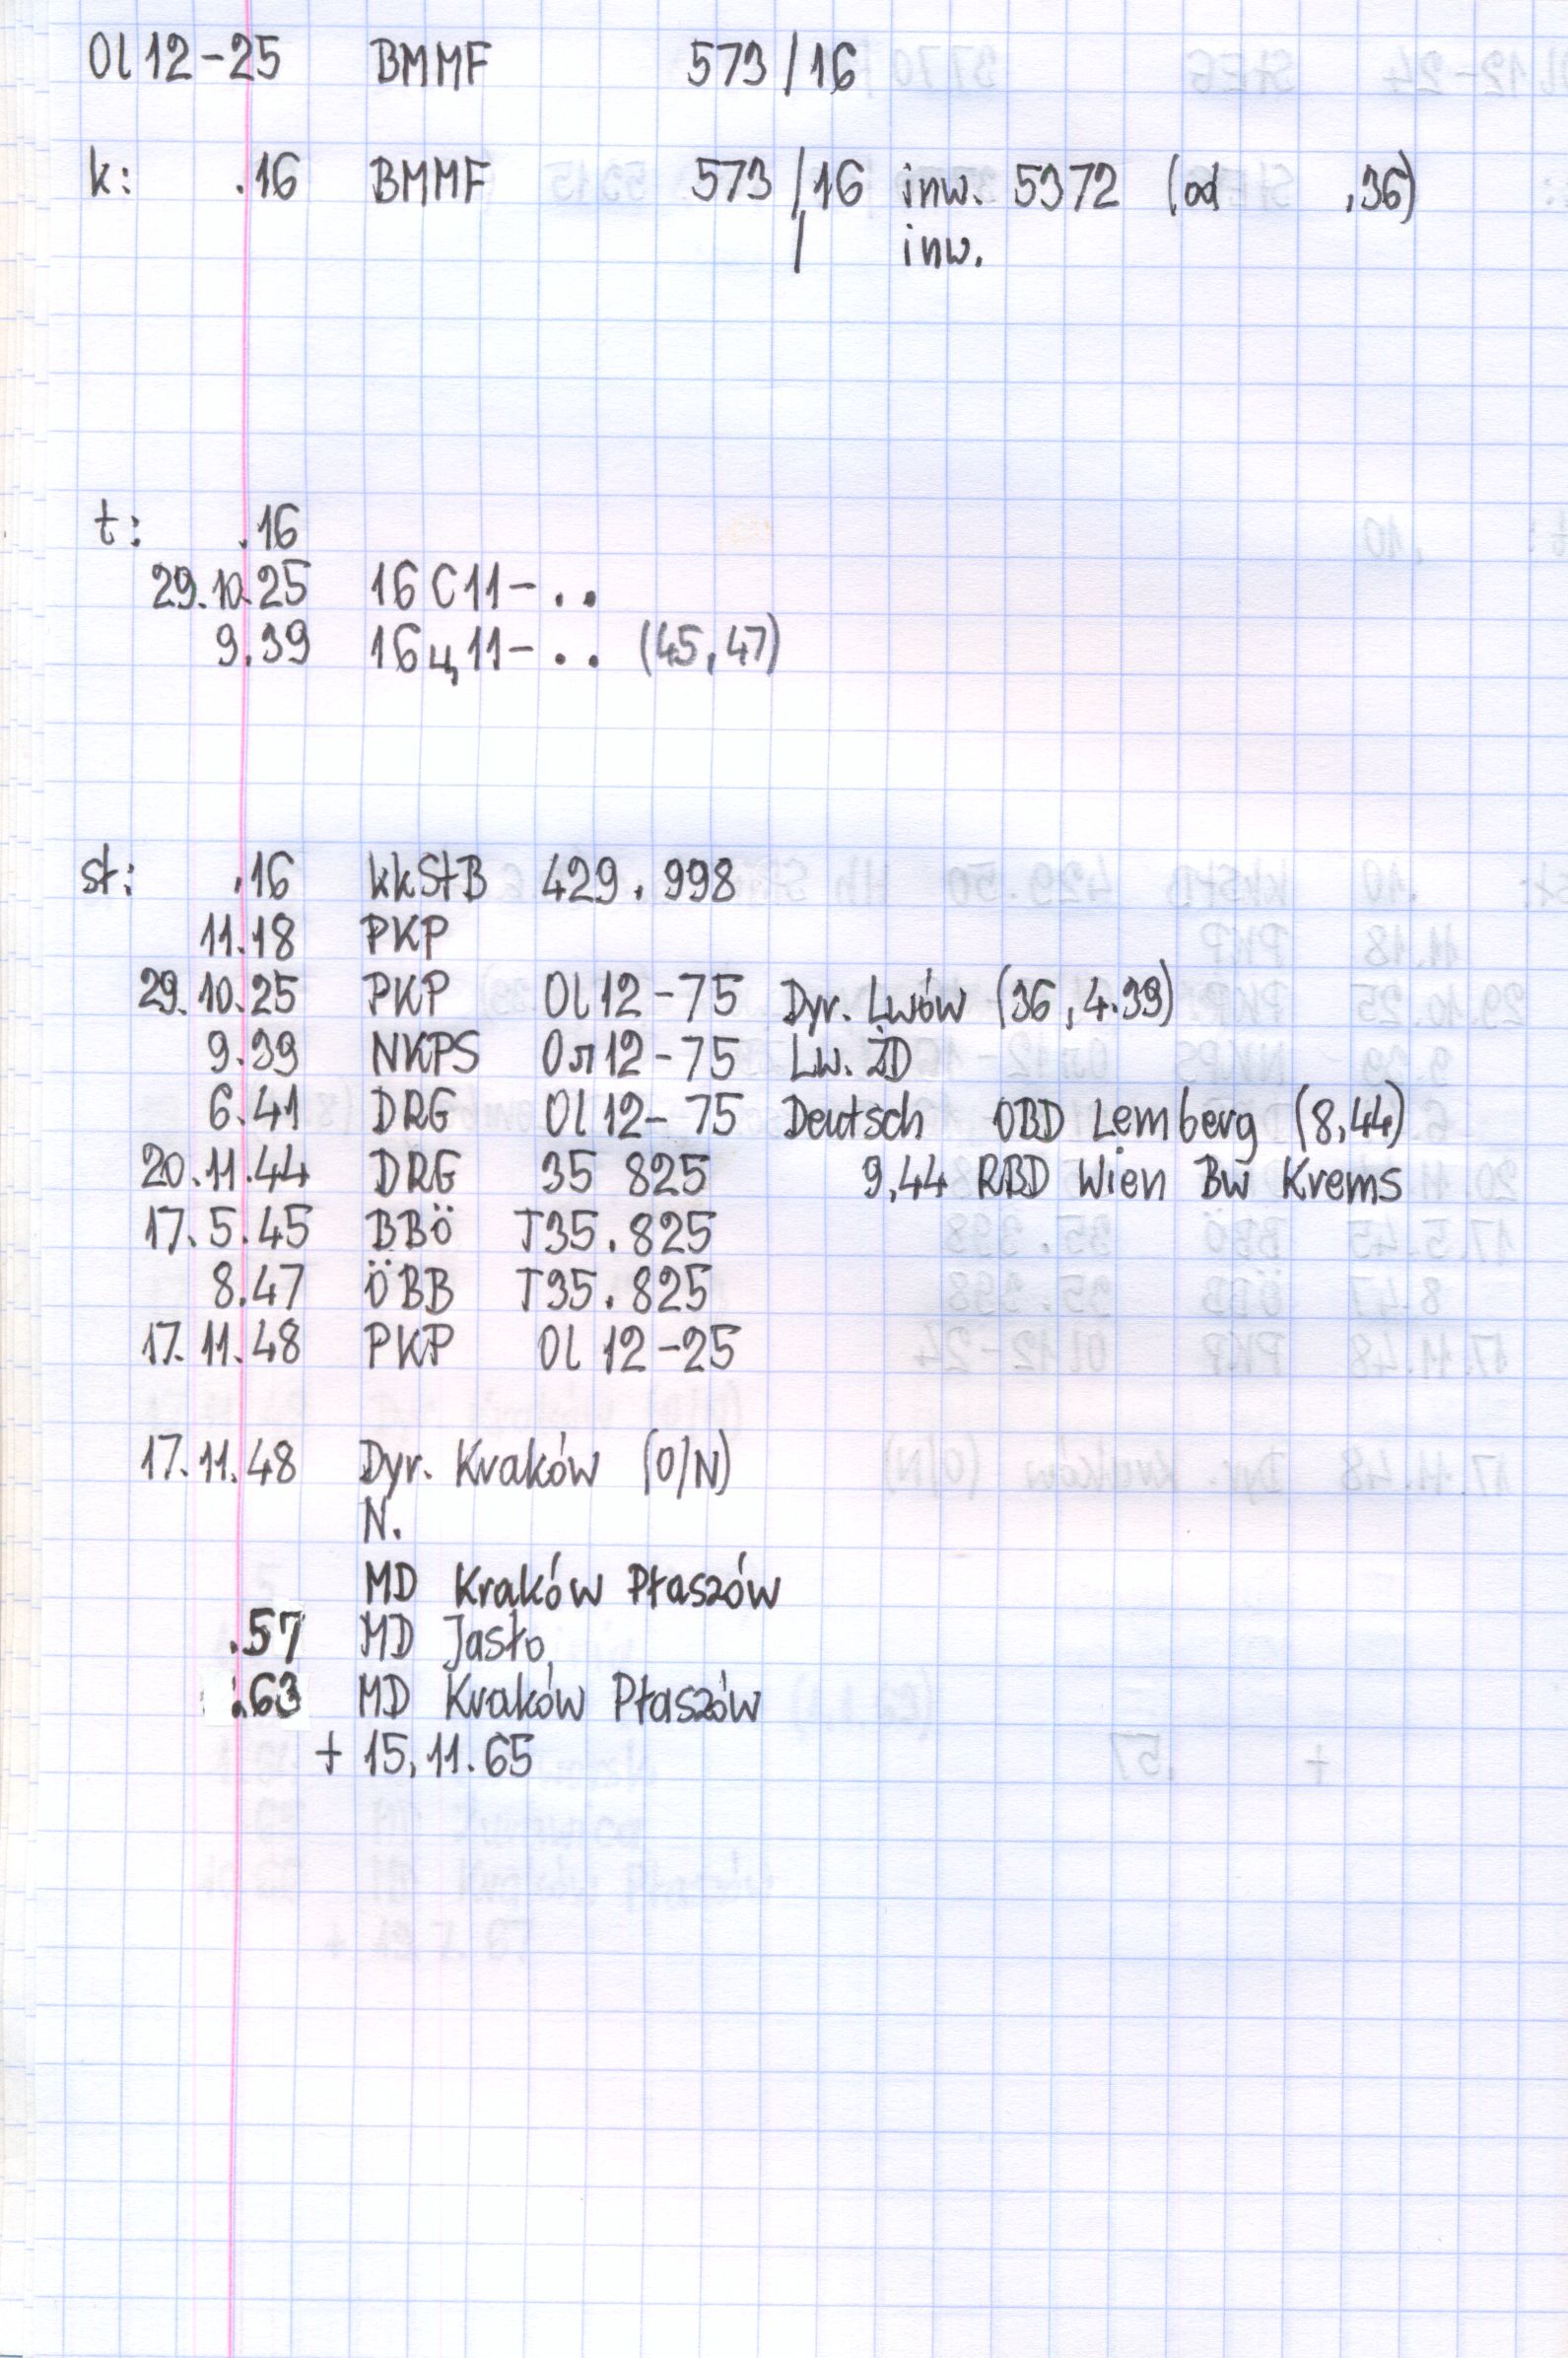 Ol12-25 BMMF 573/16
k: .16 BMMF 573/16 inw. 5372 (od .36)
/ inw.
t: .16
29.10.25 16C11-..
9.39 16ц11-.. (45,47)
st: .16 kkStB 429.998
11.18 PKP
29.10.25 PKP Ol12-75 Dyr. Lwów (36,4.39)
9.39 NKPS Ол12-75 Lw. ŻD
6.41 DRG Ol12-75 Deutsch OBD Lemberg (8,44)
20.11.44 DRG 35 825 9,44 RBD Wien Bw Krems
17.5.45 BBÖ T35.825
8.47 ÖBB T35.825
17.11.48 PKP Ol12-25
17.11.48 Dyr. Kraków (O/N)
N.
MD Kraków Płaszów
.57 MD Jasło
.63 MD Kraków Płaszów
+ 15,11.65